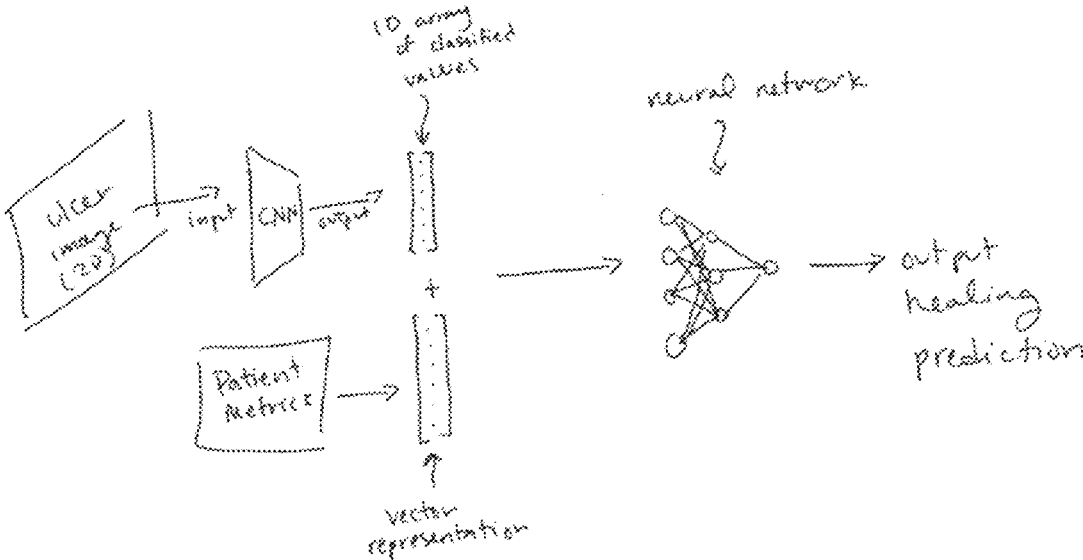 1D array
of classified
values
neural network
ulcer
image
(2D)
input
CNN
output
+
output
healing
prediction
Patient
Metrics
vector
representation